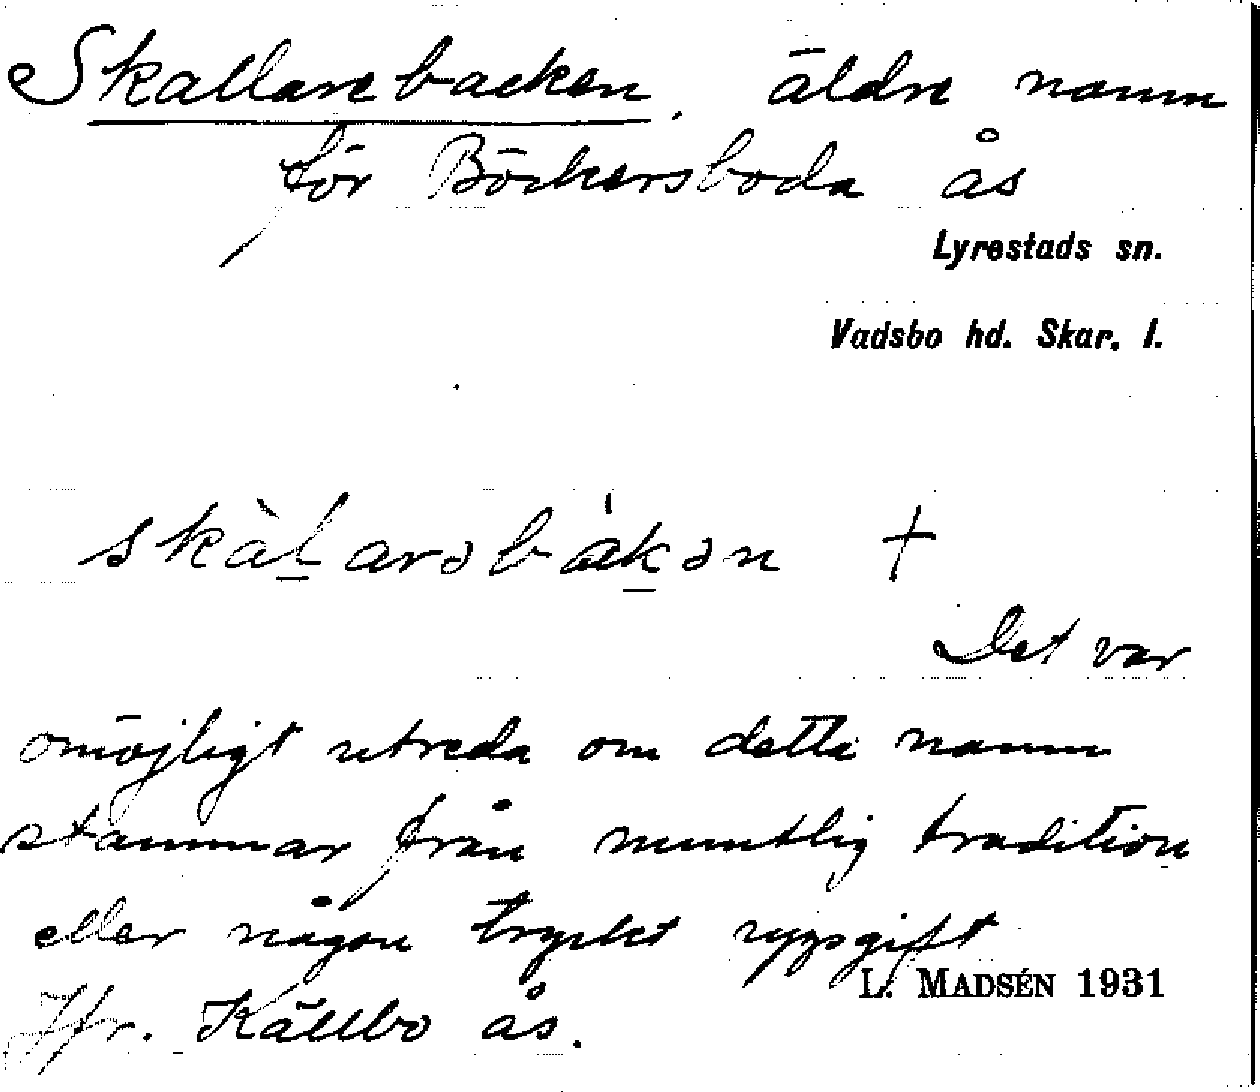 Skallarebacken, äldre namn
för Böckersboda ås
Lyrestads sn.
Vadsbo hd. Skar. l.
skàl̠arəbák̠ən +
Det var
omöjligt utreda om detta namn
stammar från muntlig tradition
eller någon tryckt uppgift
L. MADSÉN 1931
Jfr. Källbo ås.